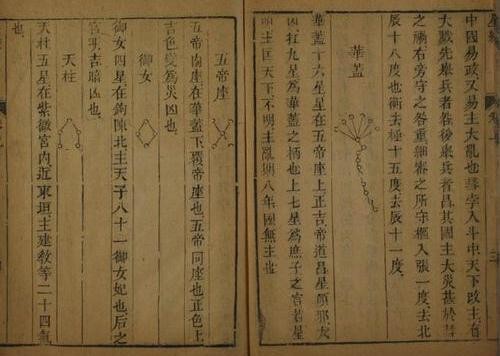 中國易政又易主大亂也彗孛入斗中天下改主有
大戮先舉兵者咎後舉兵者昌其國主大災甚於彗
之禍右旁守之咎重細審之所守樞入張一度去北
辰十八度也衡去極十五度去辰十一度
華蓋
華蓋十六星星在五帝座上正吉帝道昌星傾邪大
凶杠九星為華蓋之柄也上七星為庶子之官若星
明主匡天下不明主亂期八年國無主也
五帝座
五帝內座在華蓋下覆帝座也五帝同座也正色上
吉色變為災凶也
御女
御女四星在鉤陳北主天子八十一御女妃也后之
官明吉暗凶也
天柱
天柱五星在紫微宮內近東垣主建教等二十四氣
也